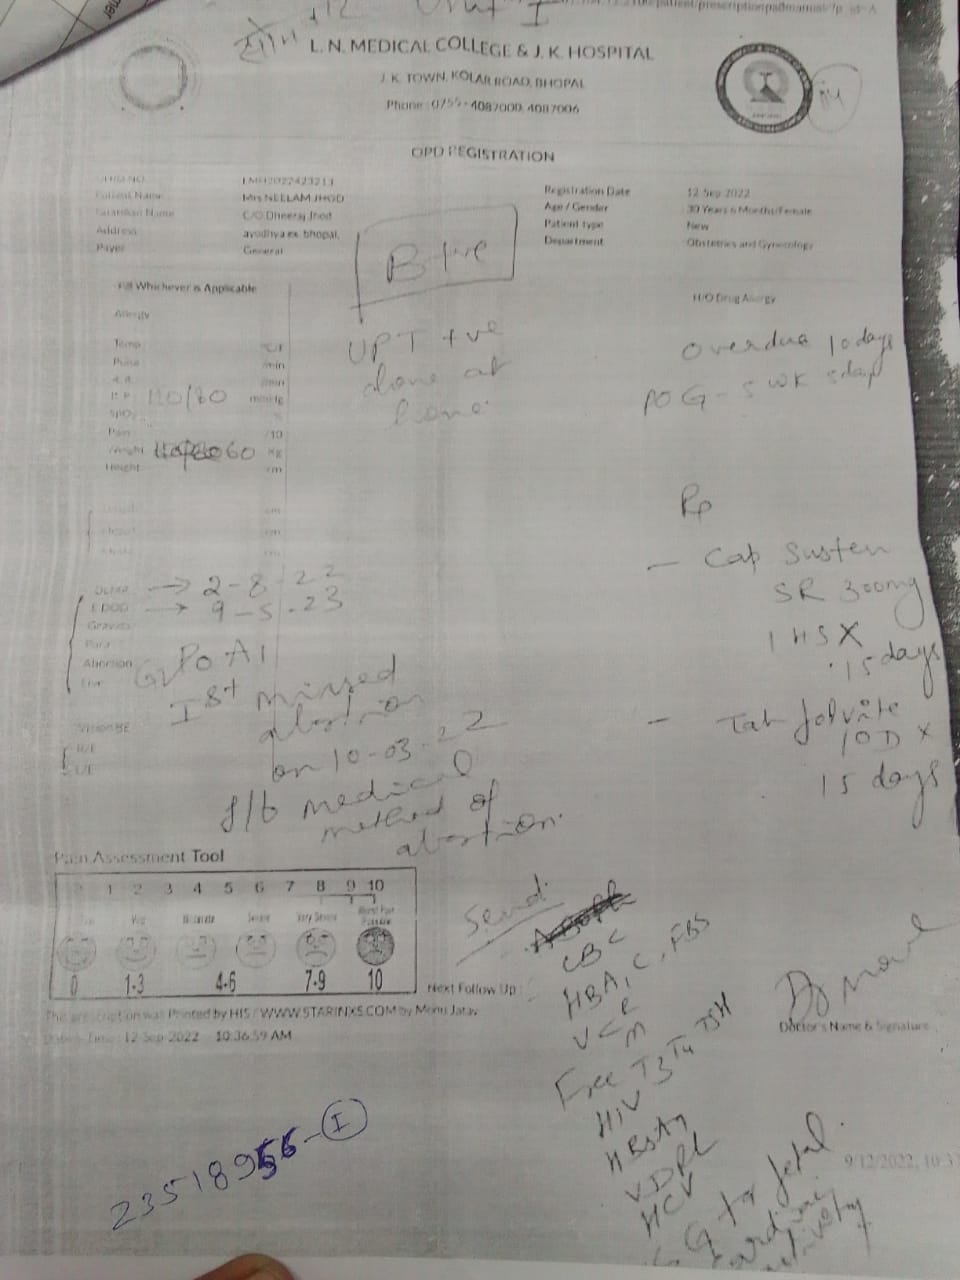 Unit I
L. N. MEDICAL COLLEGE & J. K. HOSPITAL
J. K. TOWN, KOLAR ROAD, BHOPAL
Phone : 0755 - 4087000, 4087006
OPD REGISTRATION
Patient Name Mrs NEELAM JHOD
Guardian Name C/O Dheeraj Jhod
Address ayodhya ex bhopal,
Payer General
Registration Date 12 Sep 2022
Age / Gender 30 Years 6 Months/Female
Patient type New
Department Obstetrics and Gynecology
B +ve
Fill Whichever is Applicable
H/O Drug Allergy
Allergy
Temp
Pulse /min
/min
B.P. 110/80 mmHg
SpO2 %
Pain /10
Weight 60 Kg
Height cm
UPT +ve
done at
home
overdue 10 days
POG - 5 wk 5 day
Rp
- Cap Susten
SR 300mg
1 HS X
15 days
- Tab folvite
1OD X
15 days
LMP → 2-8-22
EDOD → 9-5-23
Gravida
Para
Abortion
Live
G2 P0 A1
Ist missed
abortion
on 10-03-22
f/b medical
method of
abortion.
Pain Assessment Tool
1 2 3 4 5 6 7 8 9 10
Moderate Severe Very Severe Worst Pain Possible
0 1-3 4-6 7-9 10
Next Follow Up :
This prescription was Printed by HIS / WWW.STARINXS.COM by Monu Jatav
Date & Time : 12 Sep 2022 10:36:59 AM
Send
CBC
HBA1C, FBS
Free T3 T4 TSH
HIV
HBsAg
VDRL
HCV
for fetal
cardiac
activity
Doctor's Name & Signature
23518956-I
9/12/2022, 10:3